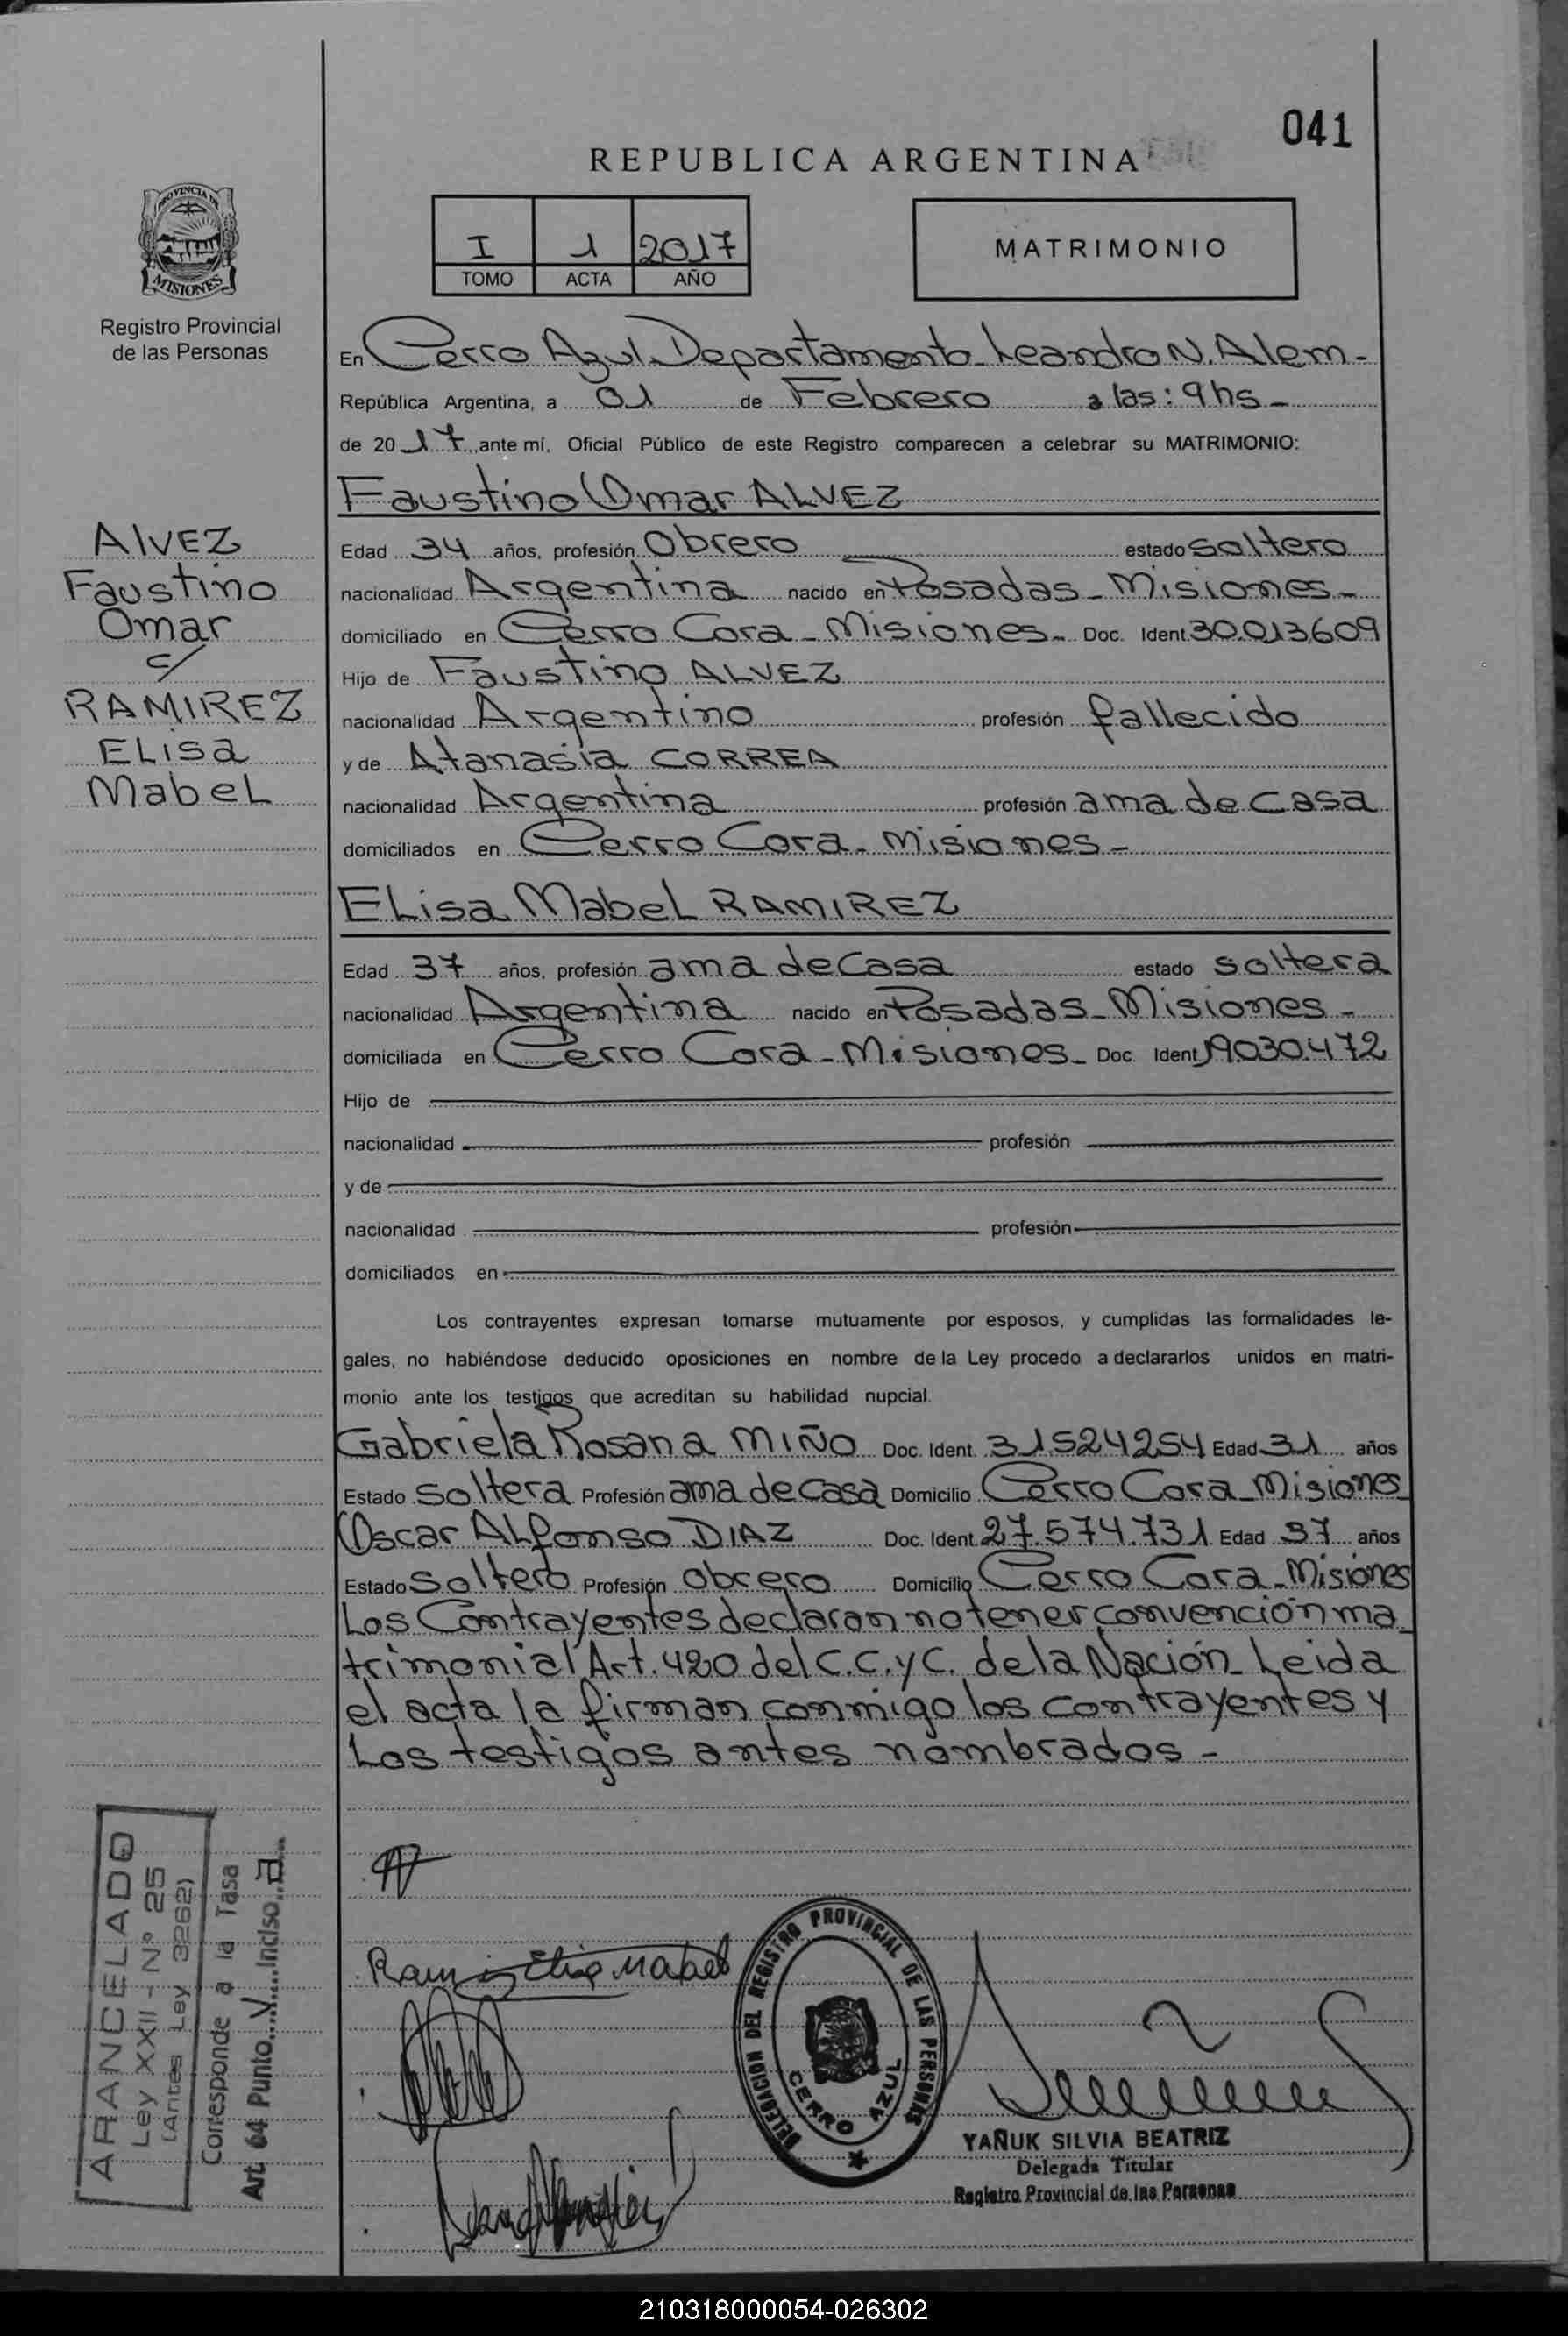 041
REPUBLICA ARGENTINA
PROVINCIA DE
MISIONES
Registro Provincial
de las Personas
I 1 2017
TOMO ACTA AÑO
MATRIMONIO
En Cerro Azul Departamento Leandro N. Alem-
República Argentina, a 01 de Febrero a las: 9 hs-
de 2017, ante mí, Oficial Público de este Registro comparecen a celebrar su MATRIMONIO:
Faustino Omar ALVEZ
Edad 34 años, profesión Obrero estado soltero
nacionalidad Argentina nacido en Posadas-Misiones-
domiciliado en Cerro Cora-Misiones- Doc. Ident. 30.013.609
Hijo de Faustino ALVEZ
nacionalidad Argentino profesión fallecido
y de Atanasia CORREA
nacionalidad Argentina profesión ama de casa
domiciliados en Cerro Cora-Misiones-
ELisa MabeL RAMIREZ
Edad 37 años, profesión ama de Casa estado soltera
nacionalidad Argentina nacido en Posadas-Misiones-
domiciliada en Cerro Cora-Misiones- Doc. Ident. 19.030.472
Hijo de
nacionalidad profesión
y de
nacionalidad profesión
domiciliados en
Los contrayentes expresan tomarse mutuamente por esposos, y cumplidas las formalidades le-
gales, no habiéndose deducido oposiciones en nombre de la Ley procedo a declararlos unidos en matri-
monio ante los testigos que acreditan su habilidad nupcial.
Gabriela Rosana MIÑO Doc. Ident. 31.524254 Edad 31 años
Estado Soltera Profesión ama de casa Domicilio Cerro Cora-Misiones
Oscar ALfonso DIAZ Doc. Ident. 27.574.731 Edad 37 años
Estado Soltero Profesión Obrero Domicilio Cerro Cora-Misiones
Los Contrayentes declaran no tener convención ma
trimonial Art. 420 del C.C.yC. de la Nación- Leida
el acta la firman conmigo los contrayentes y
Los testigos antes nombrados-
AlVEZ
Faustino
Omar
c/
RAMIREZ
ELisa
MabeL
ARANCELADO
Ley XXII - N° 25
(Antes Ley 3262)
Corresponde a la Tasa
Art. 64 Punto V Inciso a
Ramirez Elisa Mabel
DELEGACION DEL REGISTRO PROVINCIAL DE LAS PERSONAS
CERRO AZUL
YAÑUK SILVIA BEATRIZ
Delegada Titular
Registro Provincial de las Personas
210318000054-026302